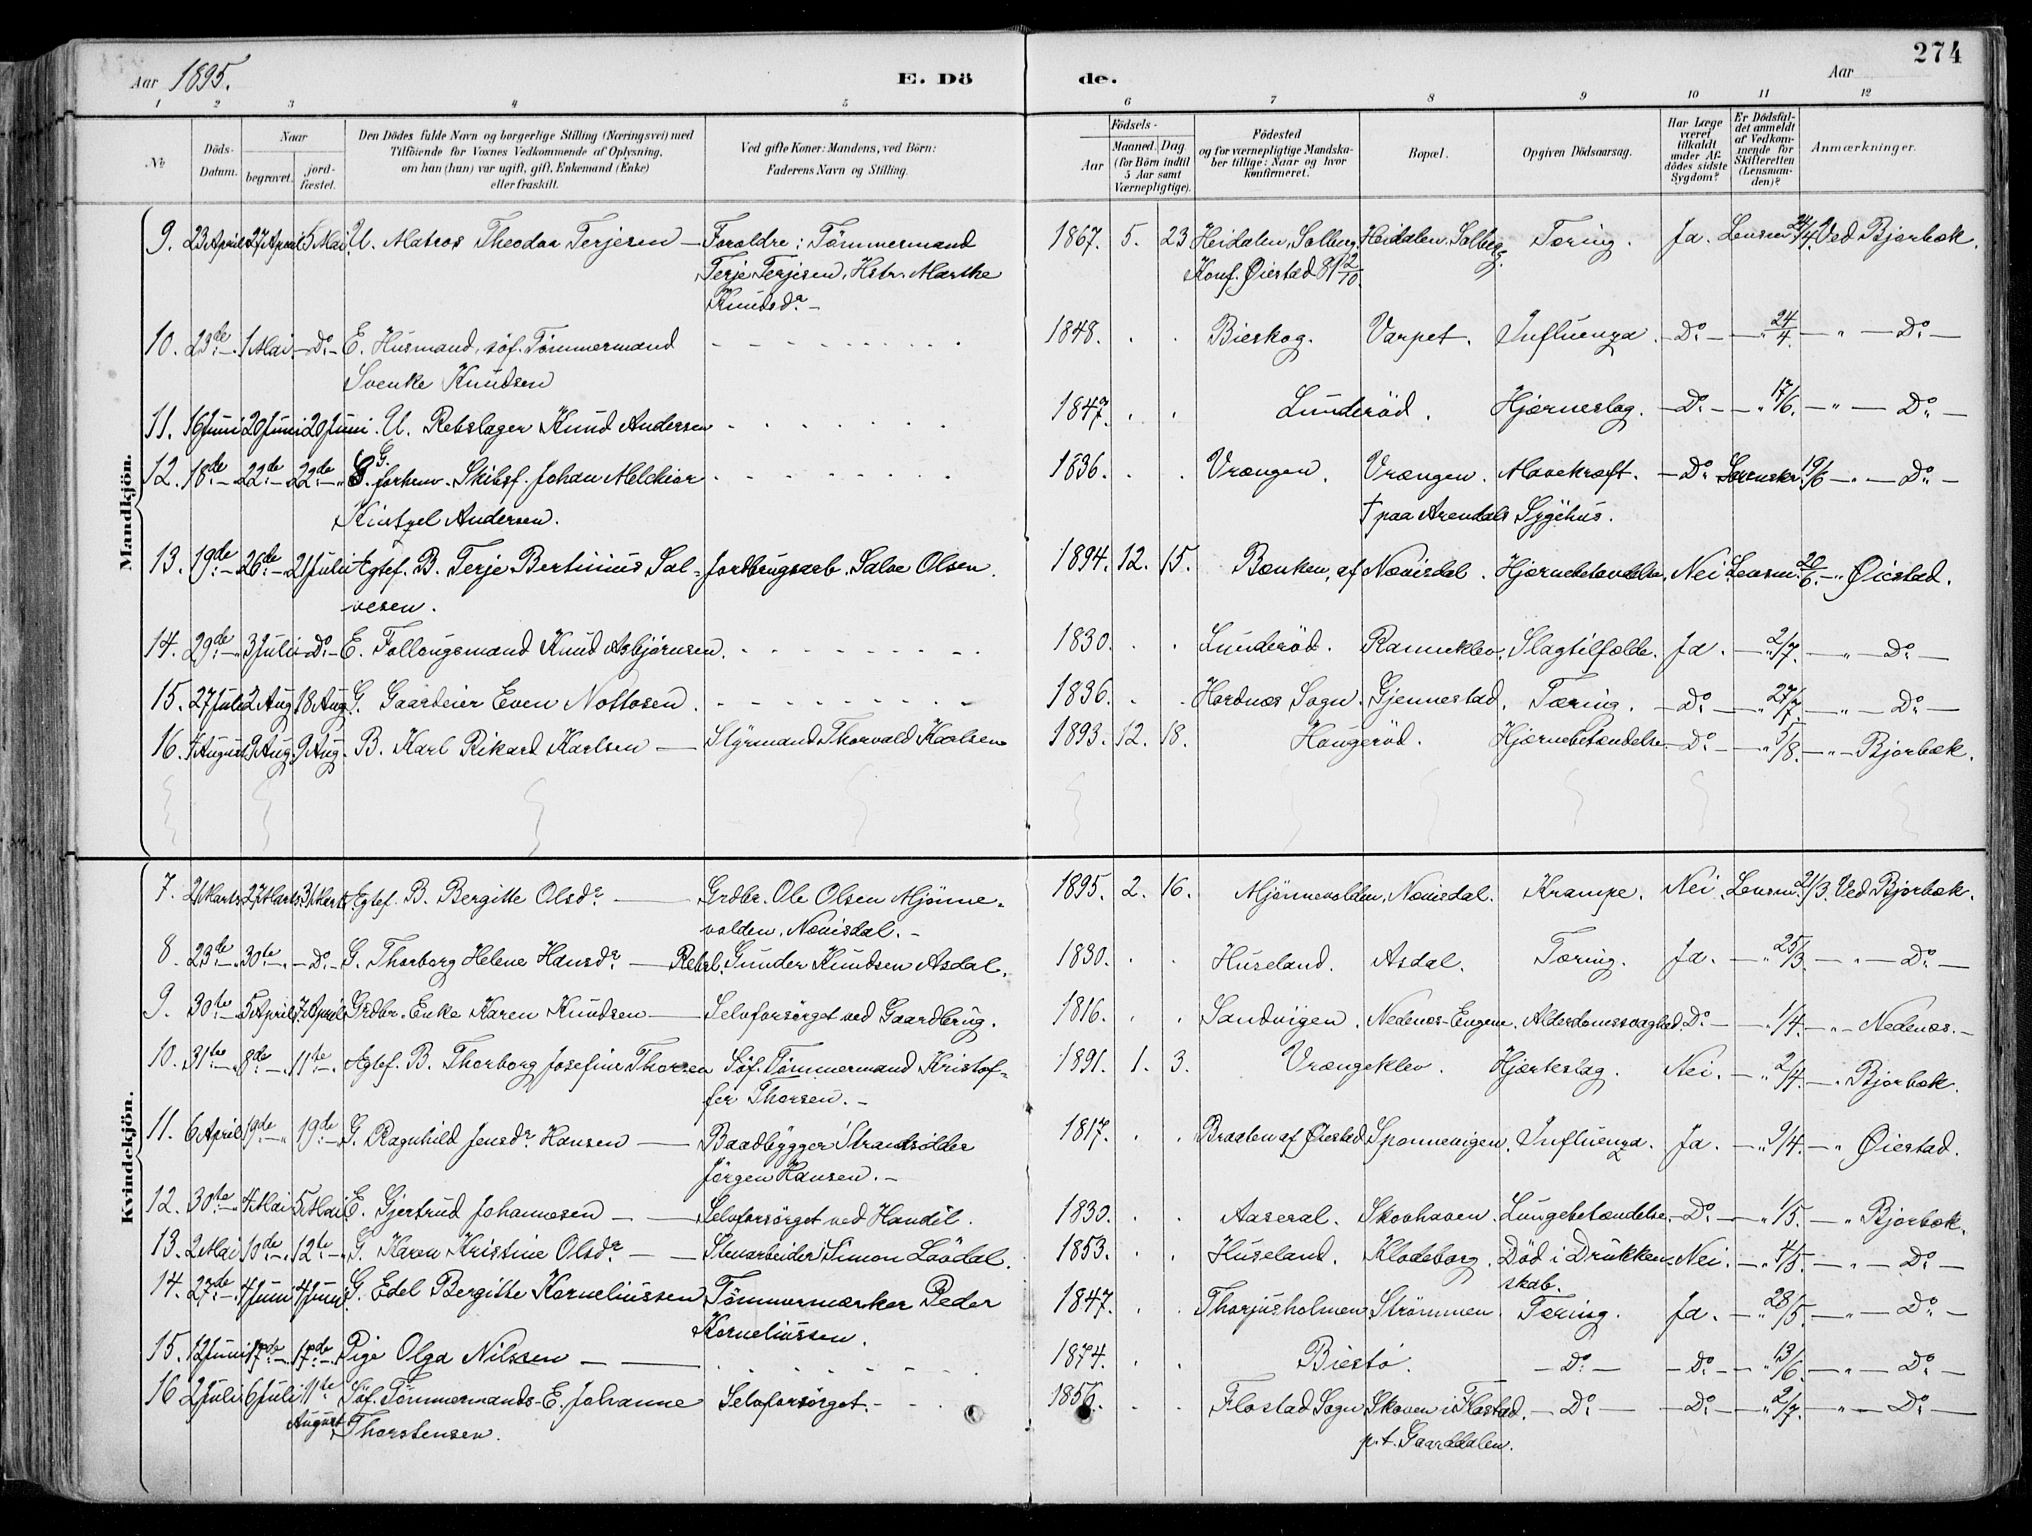 274
Aar 1895. E. Dö de. Aar
1 2 3 4 5 6 7 8 9 10 11 12
№ Döds-Datum. Naar begravet. jord-fæstet. Den Dödes fulde Navn og borgerlige Stilling (Næringsvei) med Tilföiende for Voxnes Vedkommende af Oplysning, om han (hun) var ugift, gift, Enkemand (Enke) eller fraskilt. Ved gifte Koner: Mandens, ved Börn: Faderens Navn og Stilling. Födsels- Aar Maaned. Dag (for Börn indtil 5 Aar samt Værnepligtige). Födested og for værnepligtige Mandskaber tillige: Naar og hvor konfirmeret. Bopæl. Opgiven Dödsaarsag. Har Læge været tilkaldt under Afdödes sidste Sygdom? Er Dödsfaldet anmeldt af Vedkommende for Skifteretten (Lensmanden)? Anmærkninger.
Mandkjön.
9. 23 April 27 April 5 Mai U. Matros Theodor Terjesen — Forældre: Tømmermand 1867. 5. 23 Heidalen, Salberg Heidalen, Salberg. Tæring. Ja. Lensm 24/4. Ved Bjorbæk.
Terje Terjesen, Hstr. Marthe Konf. Øiestad 81 2/10.
Knudsdr. —
10. 23de 1 Mai. — Do — E. Husmand, søf. Tømmermand 1848. Bieskog. Varpet. Influenza. — Do — — " 24/4 — " — Do —
Svenke Knudsen
11. 16 Juni 20 Juni 20 Juni. U. Rebslager Knud Andersen 1847. Lunderød. Hjerneslag. — Do — — " 17/6. — " — Do —
12. 18de 22de 22de G. forhenv. Skibsf. Johan Melchior 1836. Vrængen. Vrængen. Mavekræft. — Do Lensm 19/6 — " — Do —
Kintzel Andersen. † paa Arendals Sygehus.
13. 19de 26de 21 Juli Ægtef. B. Terje Bertinius Sal- Jordbrugsarb. Salve Olsen. 1894. 12. 15. Bænken, af Nævisdal. Hjernebetændelse. Nei. Lensm. 20/6. — " Øiestad.
vesen.
14. 29de 3 Juli — Do — E. Follougsmand Knud Asbjørnsen. 1830. Lunderød. Ranneklev. Slagtilfælde. Ja. — " 2/7. — " — Do —
15. 27 Juli 2 Aug 18 Aug. G. Gaardeier Even Nottosen. 1836. Hordnes Sogn. Gjennestad. Tæring. — Do — — " 27/7 — " — Do —
16. 4 August 9 Aug 9 Aug. B. Karl Rikard Karlsen — Styrmand Thorvald Karlsen 1893. 12. 18. Haugerød. Hjernebetændelse. Do — — " 5/8. — " — Bjorbæk.
Kvindekjön.
7. 21 Marts 27 Marts 31 Marts Ægtef. B. Bergitte Olsdr. — Grdbr. Ole Olsen Mjønne- 1895. 2. 16. Mjønnevolden, Nævisdal. Krampe. Nei. Lensm. 21/3. Ved Bjorbæk.
volden, Nævisdal. —
8. 23de 30te — Do — G. Thorborg Helene Hansdr. — Rebsl. Gunder Knudsen Asdal. 1830. Huseland. Asdal. Tæring. Ja. — " 25/3. — " — Do —
9. 30te 5 April 7 April Grdbr. Enke Karen Knudsen — Selvforsørget ved Gaardbrug. 1816. Sandvigen. Nedenes-Engene. Alderdomssvaghed. Do — " 1/4. — " Nedenes. —
10. 31te 8de 11te Ægtef. B. Thorborg Josefine Thorsen Søf. Tømmermand Kristof- 1891. 1. 3. Vrængekl​ev. Hjerteslag. Nei. — " 2/4. — " Bjorbæk.
fer Thorsen. —
11. 6 April 19de 19de G. Ragnhild Jensdr. Hansen — Baadbygger Strandsidder 1817. Braaten af Øiestad. Sponnevigen. Influenza. Ja. — " 9/4. — " Øiestad.
Jørgen Hansen. —
12. 30te 4 Mai 5 Mai E. Gjertrud Johannesen — Selvforsørget ved Handel. 1830. Aaseral. Skovhaven. Lungebetændelse. Do — — " 1/5. — " Bjorbæk.
13. 2 Mai 10de 12te G. Karen Kristine Olsdr. — Stenarbeider Simon Laødal. 1853. Huseland. Klodeborg. Død i Drukken- Nei. — " 4/5. — " — Do —
skab.
14. 27de 4 Juni 4 Juni G. Edel Bergitte Korneliussen Tømmermærker Peder 1847. Thorjusholmen Strømmen. Tæring. Ja. — " 28/5. — " — Do —
Korneliussen.
15. 12 Juni 17de 17de Pige Olga Nilssen — 1874. Biestø. — Do — — Do — — " 13/6. — " — Do —
16 2 Juli 6 Juli 11te Søf. Tømmermands-E. Johanne Selvforsørget. — 1856. Flostad Sogn Skoven i Flostad. — Do — — Do — — " 2/7. — " — Do —
August Thorstensen. p.t. Gaarddalen.